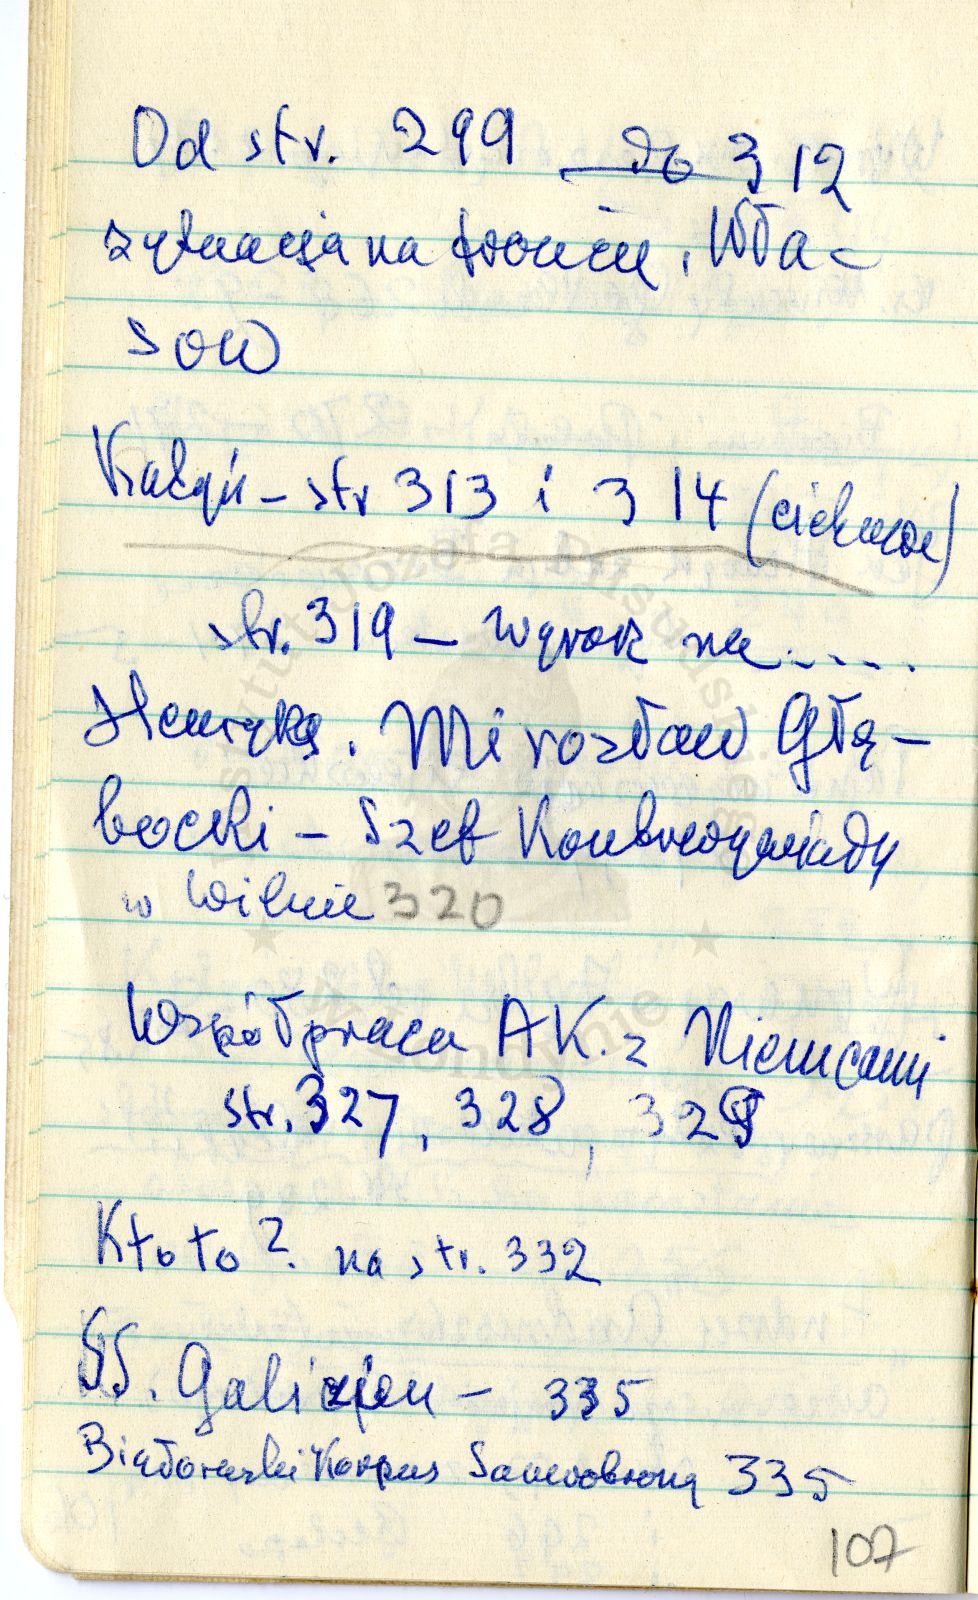 Od str. 299 do 312
sytuacja na froncie, Wła-
sow
Katyń - str 313 i 314 (ciekawe)
str. 319 - wyrok na....
Henryka. Mirosław Głę-
bocki - Szef Kontrwywiadu
w Wilnie 320
Współpraca AK. z Niemcami
str. 327, 328, 329
Kto to? na str. 332
SS. Galizien - 335
Białoruski Korpus Samoobrony 335
107
Instytut Józefa Piłsudskiego
w Londynie